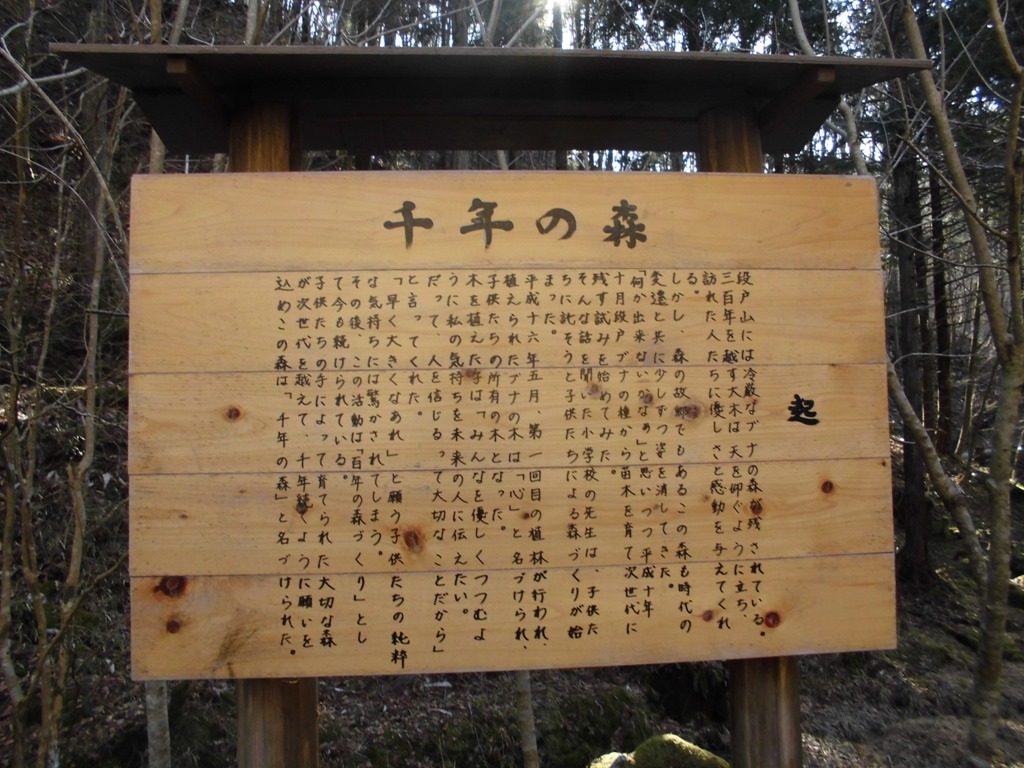 千年の森
起
段戸山には冷厳なブナの森が残されている。
三百年を越す大木は天を仰ぐように立ち、
訪れた人たちに優しさと感動を与えてくれ
る。
しかし、森の故郷でもあるこの森も時代の
変遷と共に少しずつ姿を消してきた。
「何か出来ないかなぁ」と思いつつ平成十年
十月段戸ブナの種から苗木を育て次世代に
残す試みを始めてみた。
そんな話を聞いた小学校の先生は、子供た
ちに託そうと子供たちによる森づくりが始
まった。
平成十六年五月、第一回目の植林が行われ、
植えられたブナの木は「心」と名づけられ、
子供たちの所有の木となった。
木を植えた子は「みんなを優しくつつむよ
うに私の気持ちを未来の人に伝えたい。
だって、人を信じるって大切なことだから」
と言ってくれた。
「早く大きくなあれ」と願う子供たちの純粋
な気持ちには驚かされてしまう。
その後、この活動は「百年の森づくり」とし
て今も続けられている。
子供たちの手によって育てられた大切な森
が次世代を越えて、千年続くように願いを
込めこの森は「千年の森」と名づけられた。